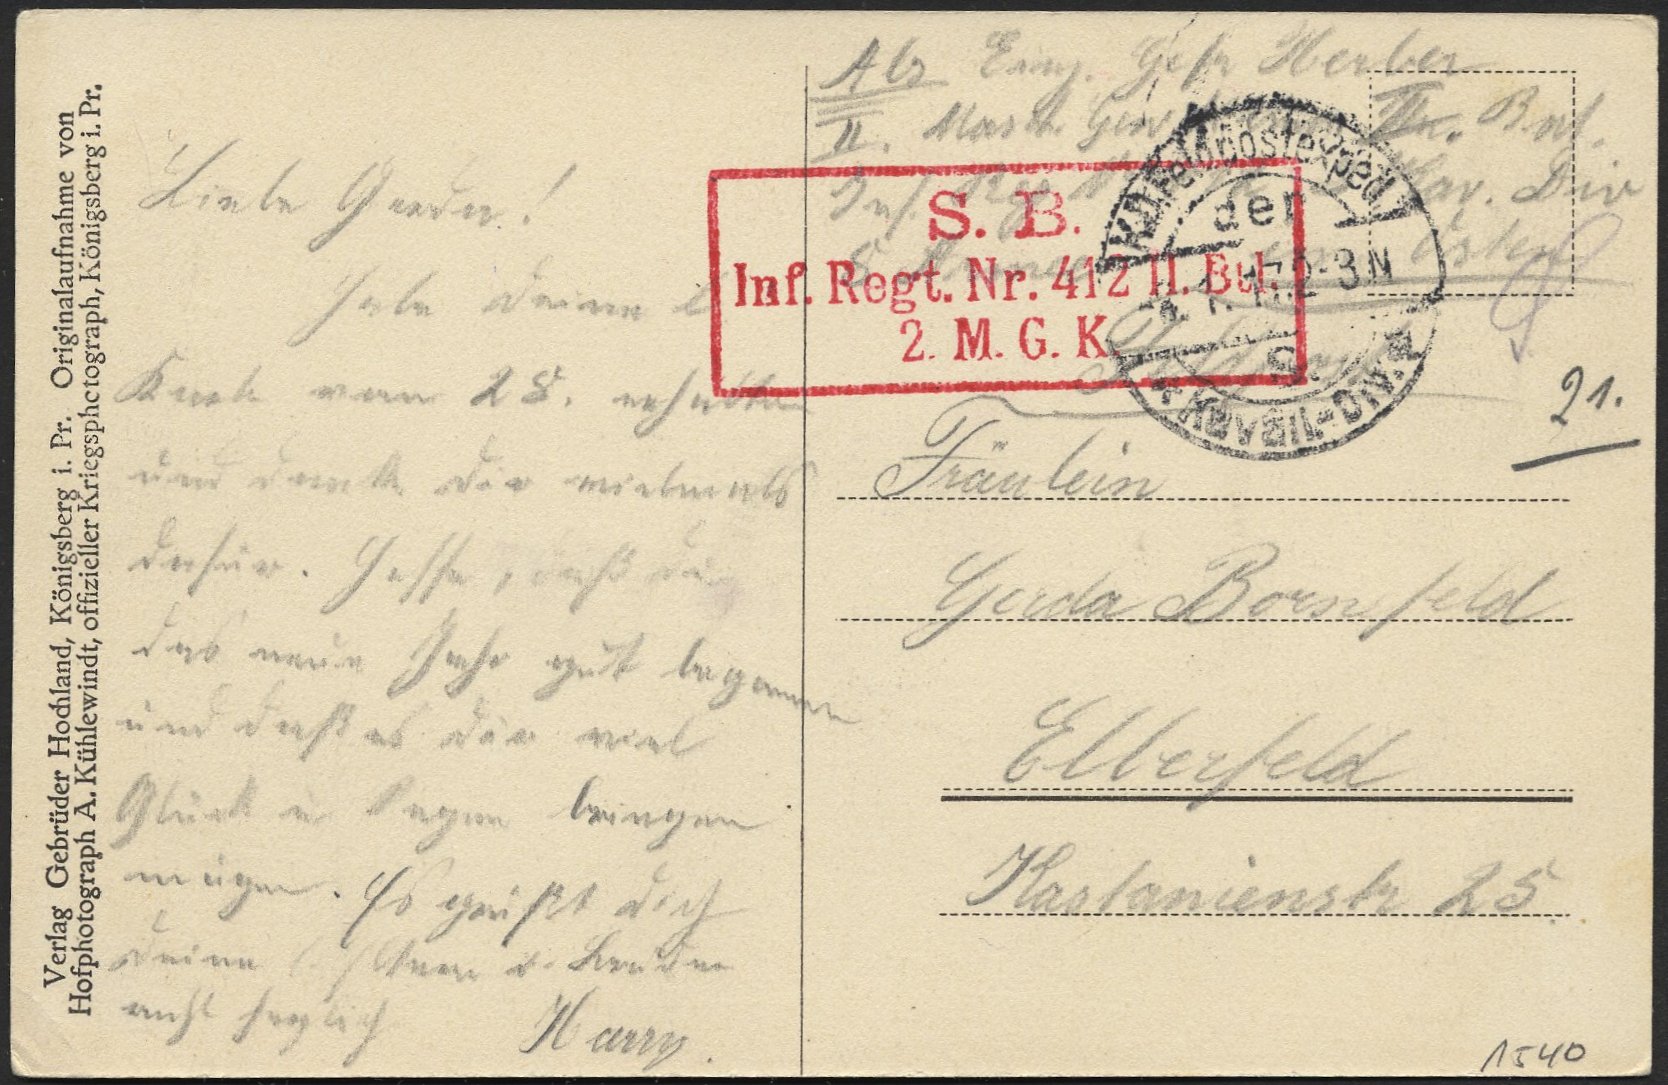 Verlag Gebrüder Hochland, Königsberg i. Pr. Originalaufnahme von
Hofphotograph A. Kühlewindt, offizieller Kriegsphotograph, Königsberg i. Pr.
Liebe Gerda!
Habe deine l.
Karte vom 28. erhalten
und danke dir vielmals
dafür. Hoffe, daß du
das neue Jahr gut begonnen
und daß es dir viel
Glück u Segen bringen
mögen. Es grüßt dich
deine Eltern u. Bruder
recht herzlich
Harry.
Abs Einj. Gefr Herber
II. Masch. Gew. Batl.
Inf. Reg. Div
Osten
S. B.
Inf. Regt. Nr. 412 II. Btl.
2. M. G. K.
K.D. Feldpostexped.
der
2-3N
21.
Fräulein
Gerda Bornefeld
Elberfeld
Kastanienstr 25.
1540